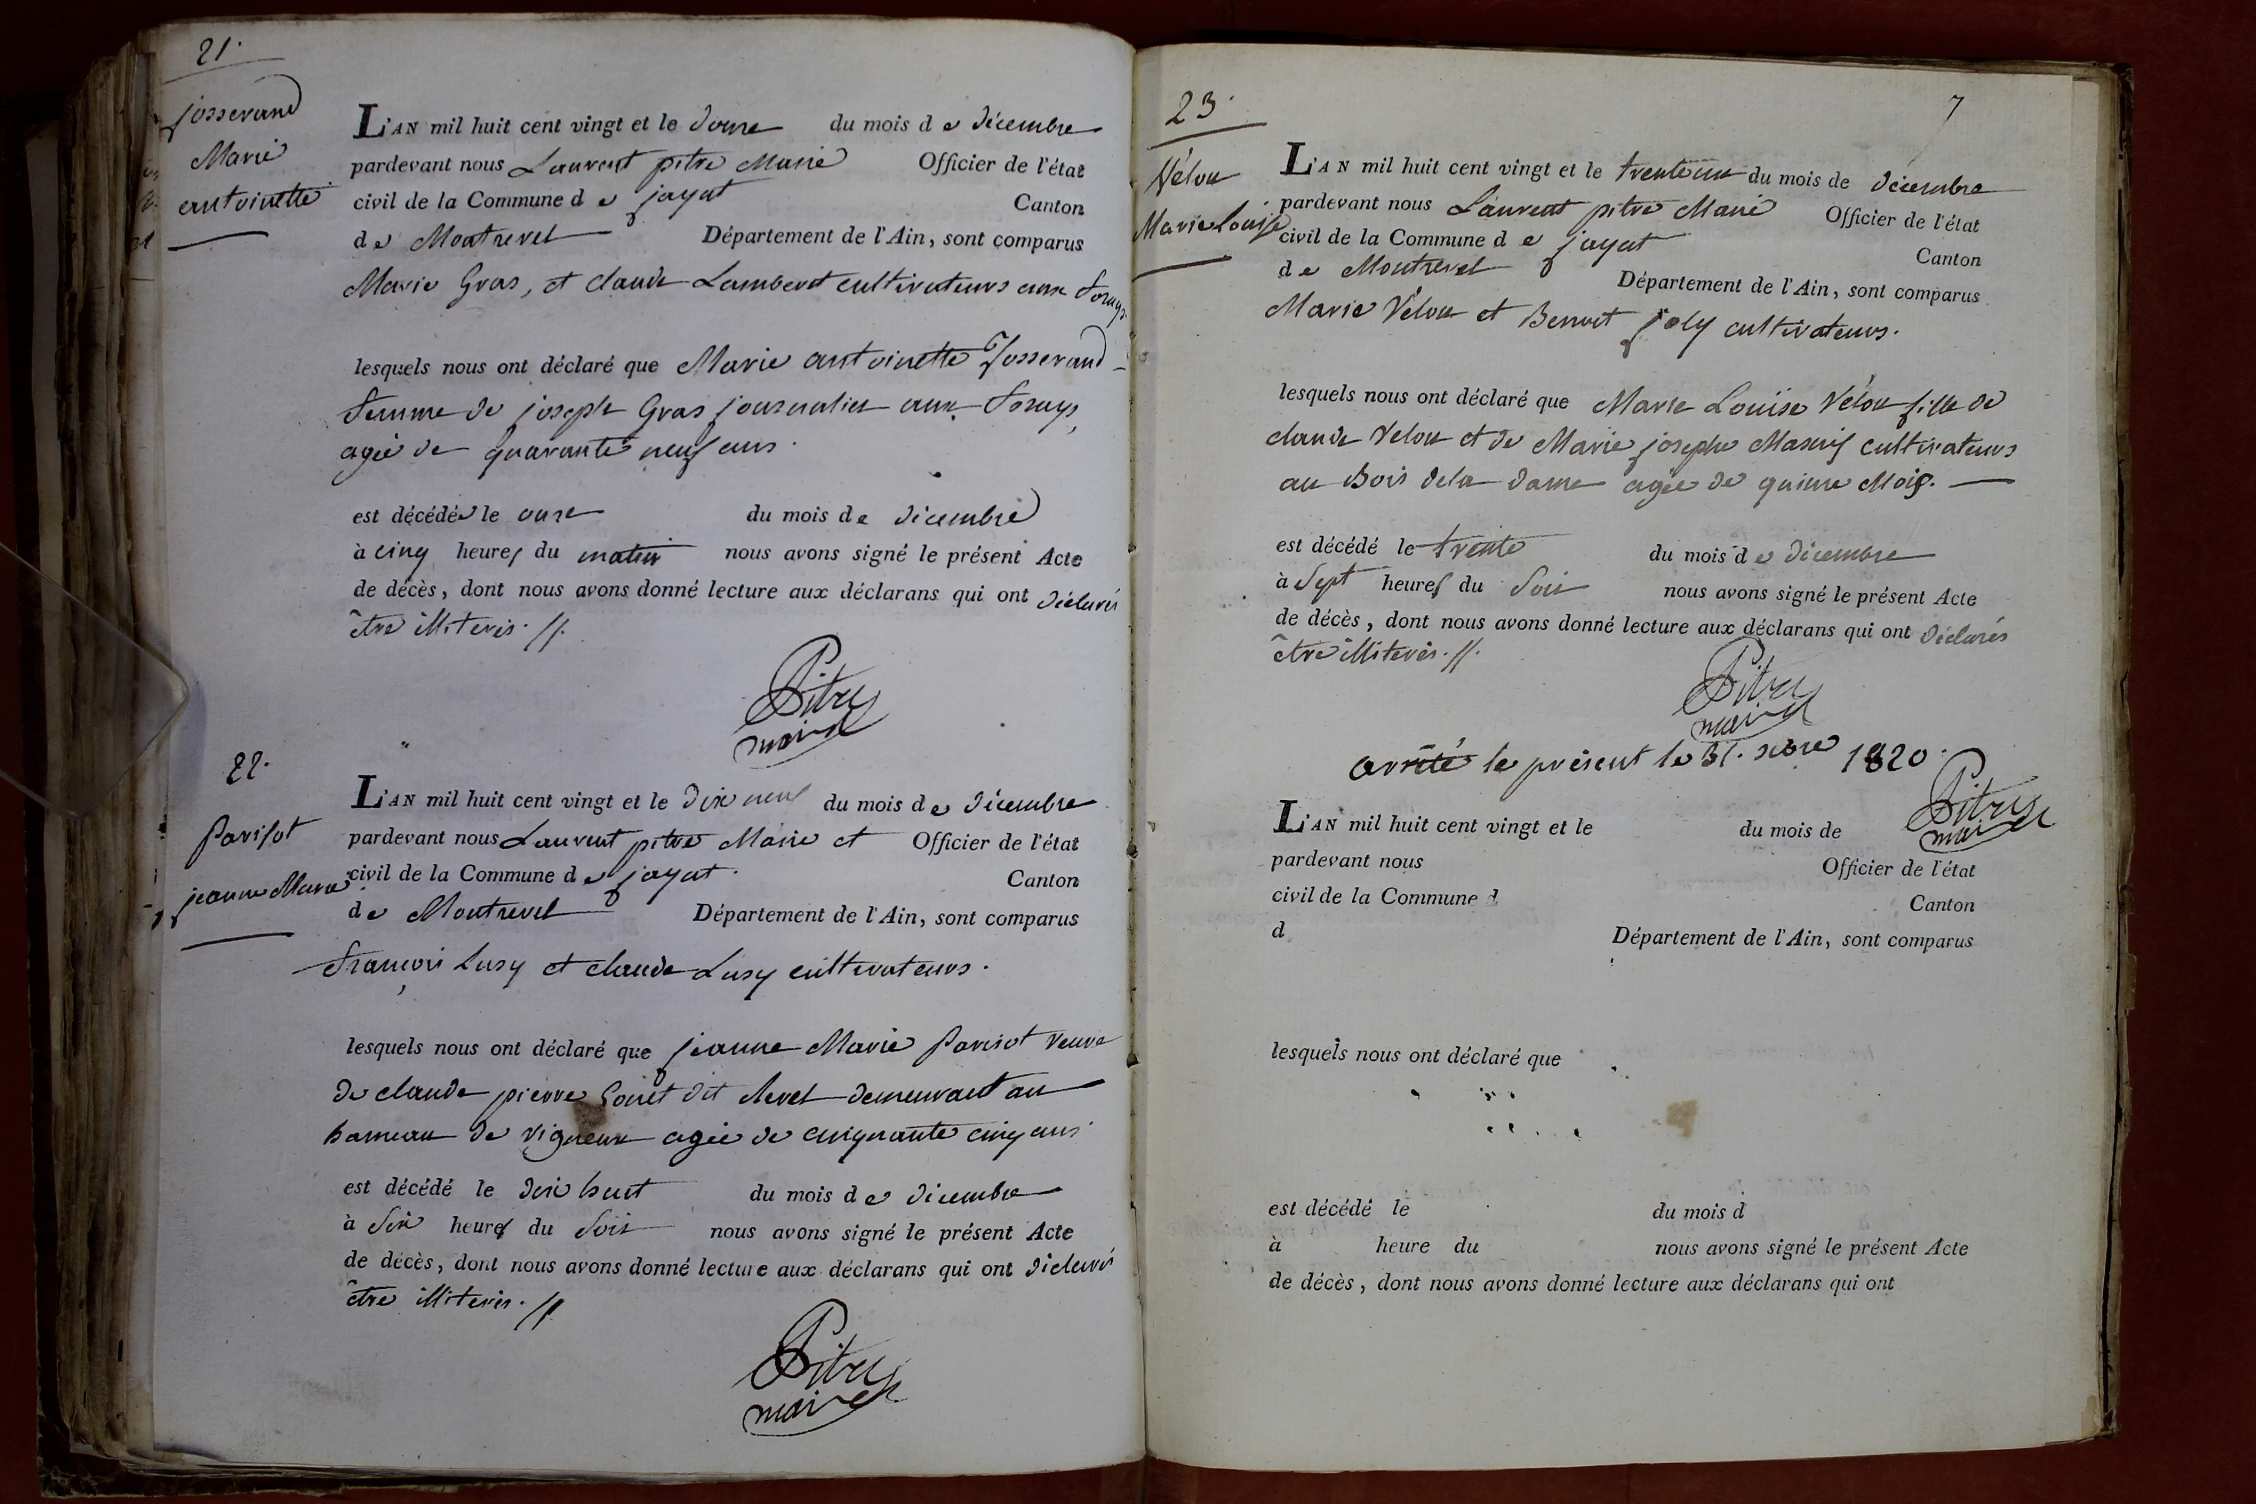 21.
josserand
Marie
antoinette
L'AN mil huit cent vingt et le douze du mois de décembre
pardevant nous Laurent pitre Maire Officier de l'état
civil de la Commune de jayat Canton
de Montrevel Département de l'Ain, sont comparus
Marie Gras, et claude Lambert cultivateurs aux
lesquels nous ont déclaré que Marie antoinette Josserand
femme de joseph Gras journalier aux
agée de quarante neuf ans.
est décédée le onze du mois de décembre
à cinq heures du matin nous avons signé le présent Acte
de décès, dont nous avons donné lecture aux déclarans qui ont déclarés
être illiterés. //.
Pitre
maire
22.
Parisot
jeanne Marie
L'AN mil huit cent vingt et le dix neuf du mois de décembre
pardevant nous Laurent pitre Maire et Officier de l'état
civil de la Commune de jayat. Canton
de Montrevel Département de l'Ain, sont comparus
françois Lusy et claude Lusy cultivateurs.
lesquels nous ont déclaré que jeanne Marie Parisot veuve
de claude pierre dit demeurant au
hameau de vigneux agée de cinquante cinq ans
est décédé le dix huit du mois de décembre
à Six heures du Soir nous avons signé le présent Acte
de décès, dont nous avons donné lecture aux déclarans qui ont déclarés
être illiterés. //
Pitre
maire
23.
7
Vélon
Marie Louise
L'AN mil huit cent vingt et le trente un du mois de décembre
pardevant nous Laurent pitre Maire Officier de l'état
civil de la Commune de jayat Canton
de Montrevel Département de l'Ain, sont comparus
Marie Vélon et Benoit joly cultivateurs.
lesquels nous ont déclaré que Marie Louise Vélon fille de
claude Velon et de Marie josephe cultivateurs
au Bois dela dame agée de quinze Mois.
est décédé le trente du mois de décembre
à Sept heures du Soir nous avons signé le présent Acte
de décès, dont nous avons donné lecture aux déclarans qui ont déclarés
être illiterés. //.
Pitre
maire
arrêté le présent le 31. xbre 1820.
Pitre
maire
L'AN mil huit cent vingt et le du mois de
pardevant nous Officier de l'état
civil de la Commune d Canton
d Département de l'Ain, sont comparus
lesquels nous ont déclaré que
est décédé le du mois d
à heure du nous avons signé le présent Acte
de décès, dont nous avons donné lecture aux déclarans qui ont